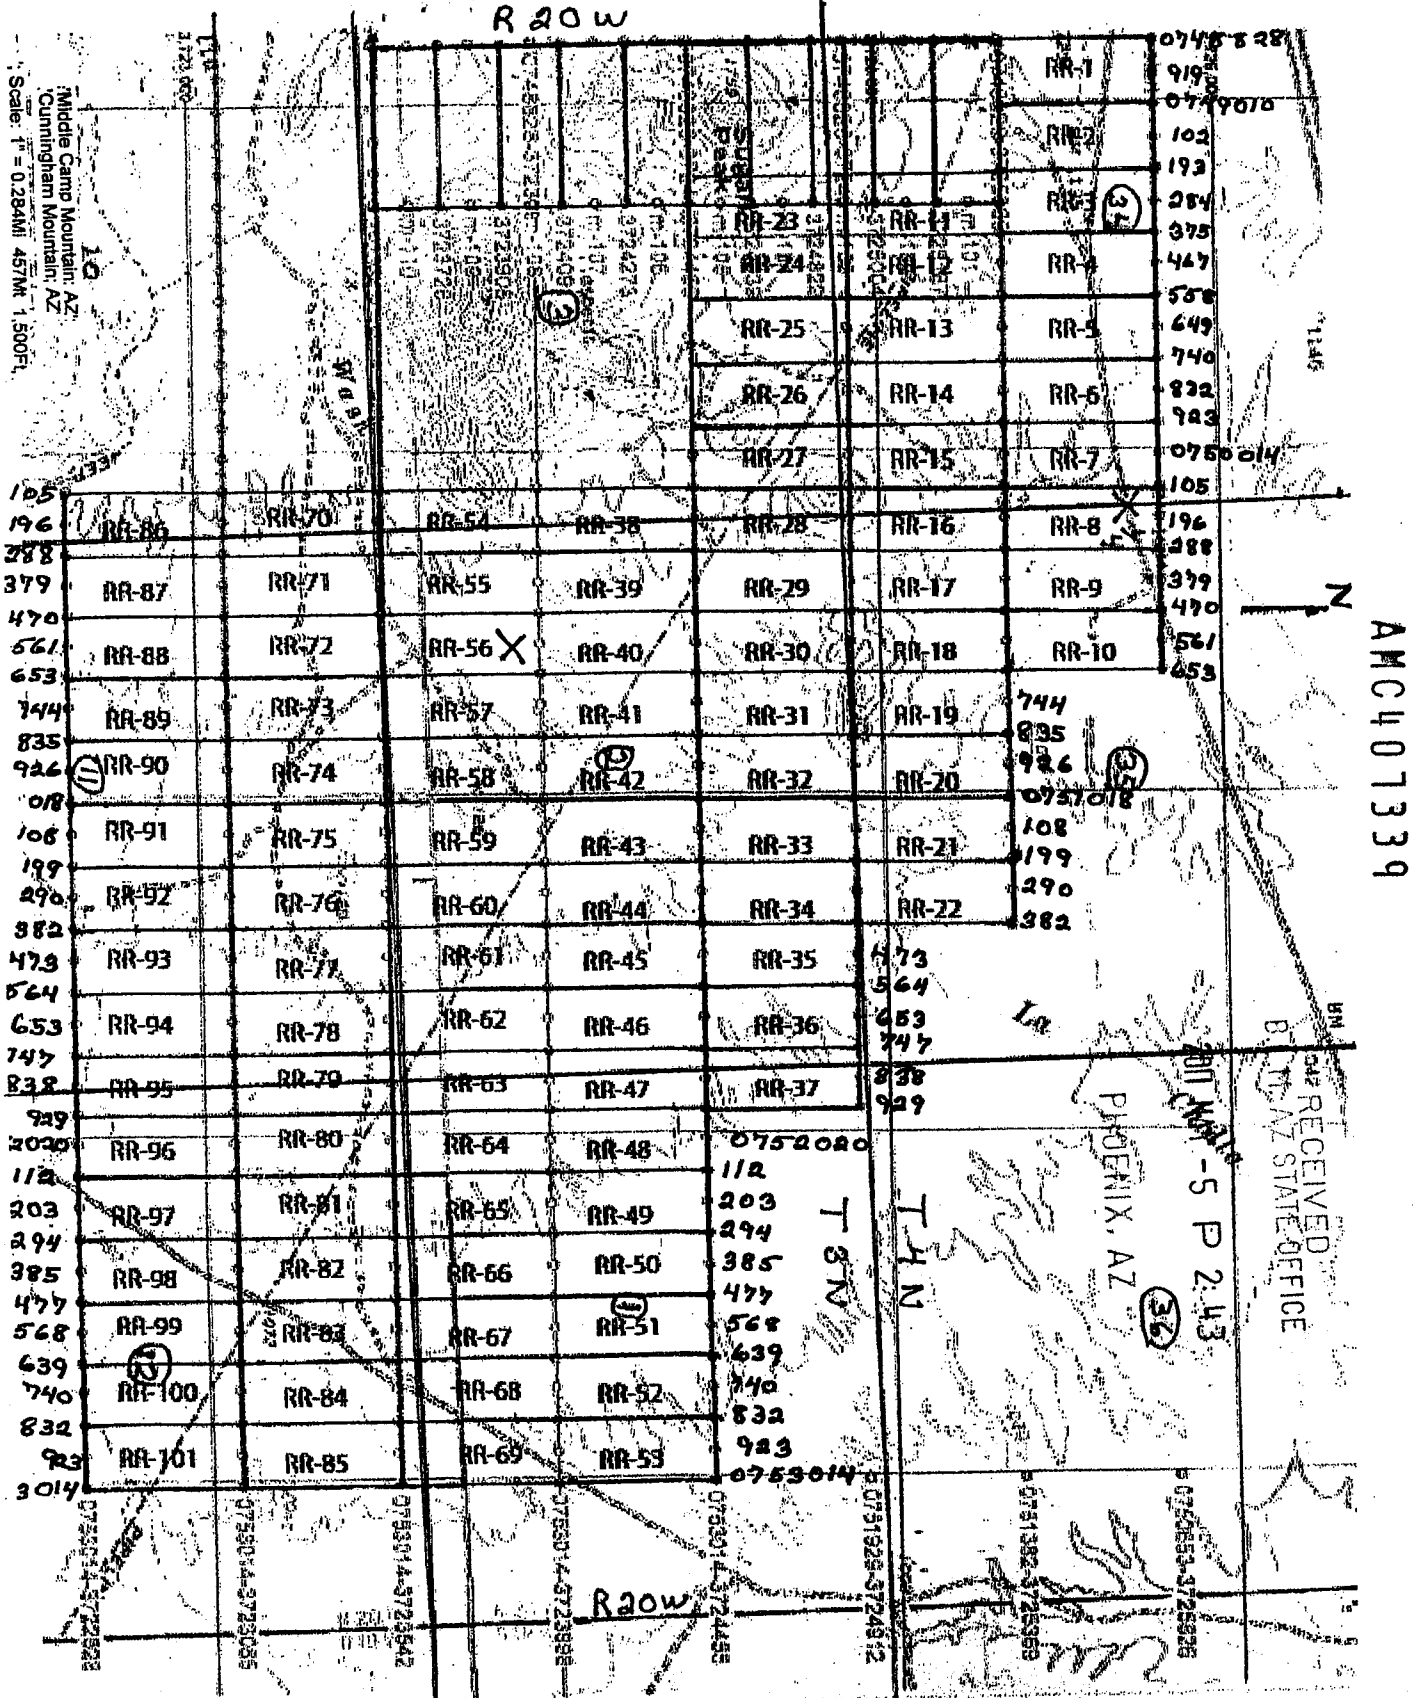 R 20W
"Middle Camp Mountain: AZ
'Cunningham Mountain: AZ
Scale: 1" = 0.284Mi 457Mt 1,500Ft,
10
Wash
Sugarloaf
Peak
RR-1
RR-2
RR-3
34
RR-4
RR-5
RR-6
RR-7
RR-8
RR-9
RR-10
RR-11
RR-12
RR-13
RR-14
RR-15
RR-16
RR-17
RR-18
RR-19
RR-20
RR-21
RR-22
RR-23
RR-24
RR-25
RR-26
RR-27
RR-28
RR-29
RR-30
RR-31
RR-32
RR-33
RR-34
RR-35
RR-36
RR-37
RR-38
RR-39
RR-40
RR-41
RR-42
RR-43
RR-44
RR-45
RR-46
RR-47
RR-48
RR-49
RR-50
RR-51
RR-52
RR-53
RR-54
RR-55
RR-56 X
RR-57
RR-58
RR-59
RR-60
RR-61
RR-62
RR-63
RR-64
RR-65
RR-66
RR-67
RR-68
RR-69
RR-70
RR-71
RR-72
RR-73
RR-74
RR-75
RR-76
RR-77
RR-78
RR-79
RR-80
RR-81
RR-82
RR-83
RR-84
RR-85
RR-86
RR-87
RR-88
RR-89
RR-90
RR-91
RR-92
RR-93
RR-94
RR-95
RR-96
RR-97
RR-98
RR-99
RR-100
RR-101
0748828
919
0749010
102
193
284
375
467
558
649
740
832
923
0750014
105
196
288
379
470
561
653
744
835
926
0751018
108
199
290
382
473
564
653
747
838
929
0752020
112
203
294
385
477
568
639
740
832
923
0753014
105
196
288
379
470
561
653
744
835
926
018
108
199
290
382
473
564
653
747
838
929
2020
112
203
294
385
477
568
639
740
832
923
3014
3
11
35
36
12
N
AMC407339
T 3 N
T 4 N
La
RECEIVED
AZ STATE OFFICE
-5 P 2:43
PHOENIX, AZ
R20W
0753014-3723542
0753014-3723998
0753014-3724455
0751929-3724912
0751382-3725369